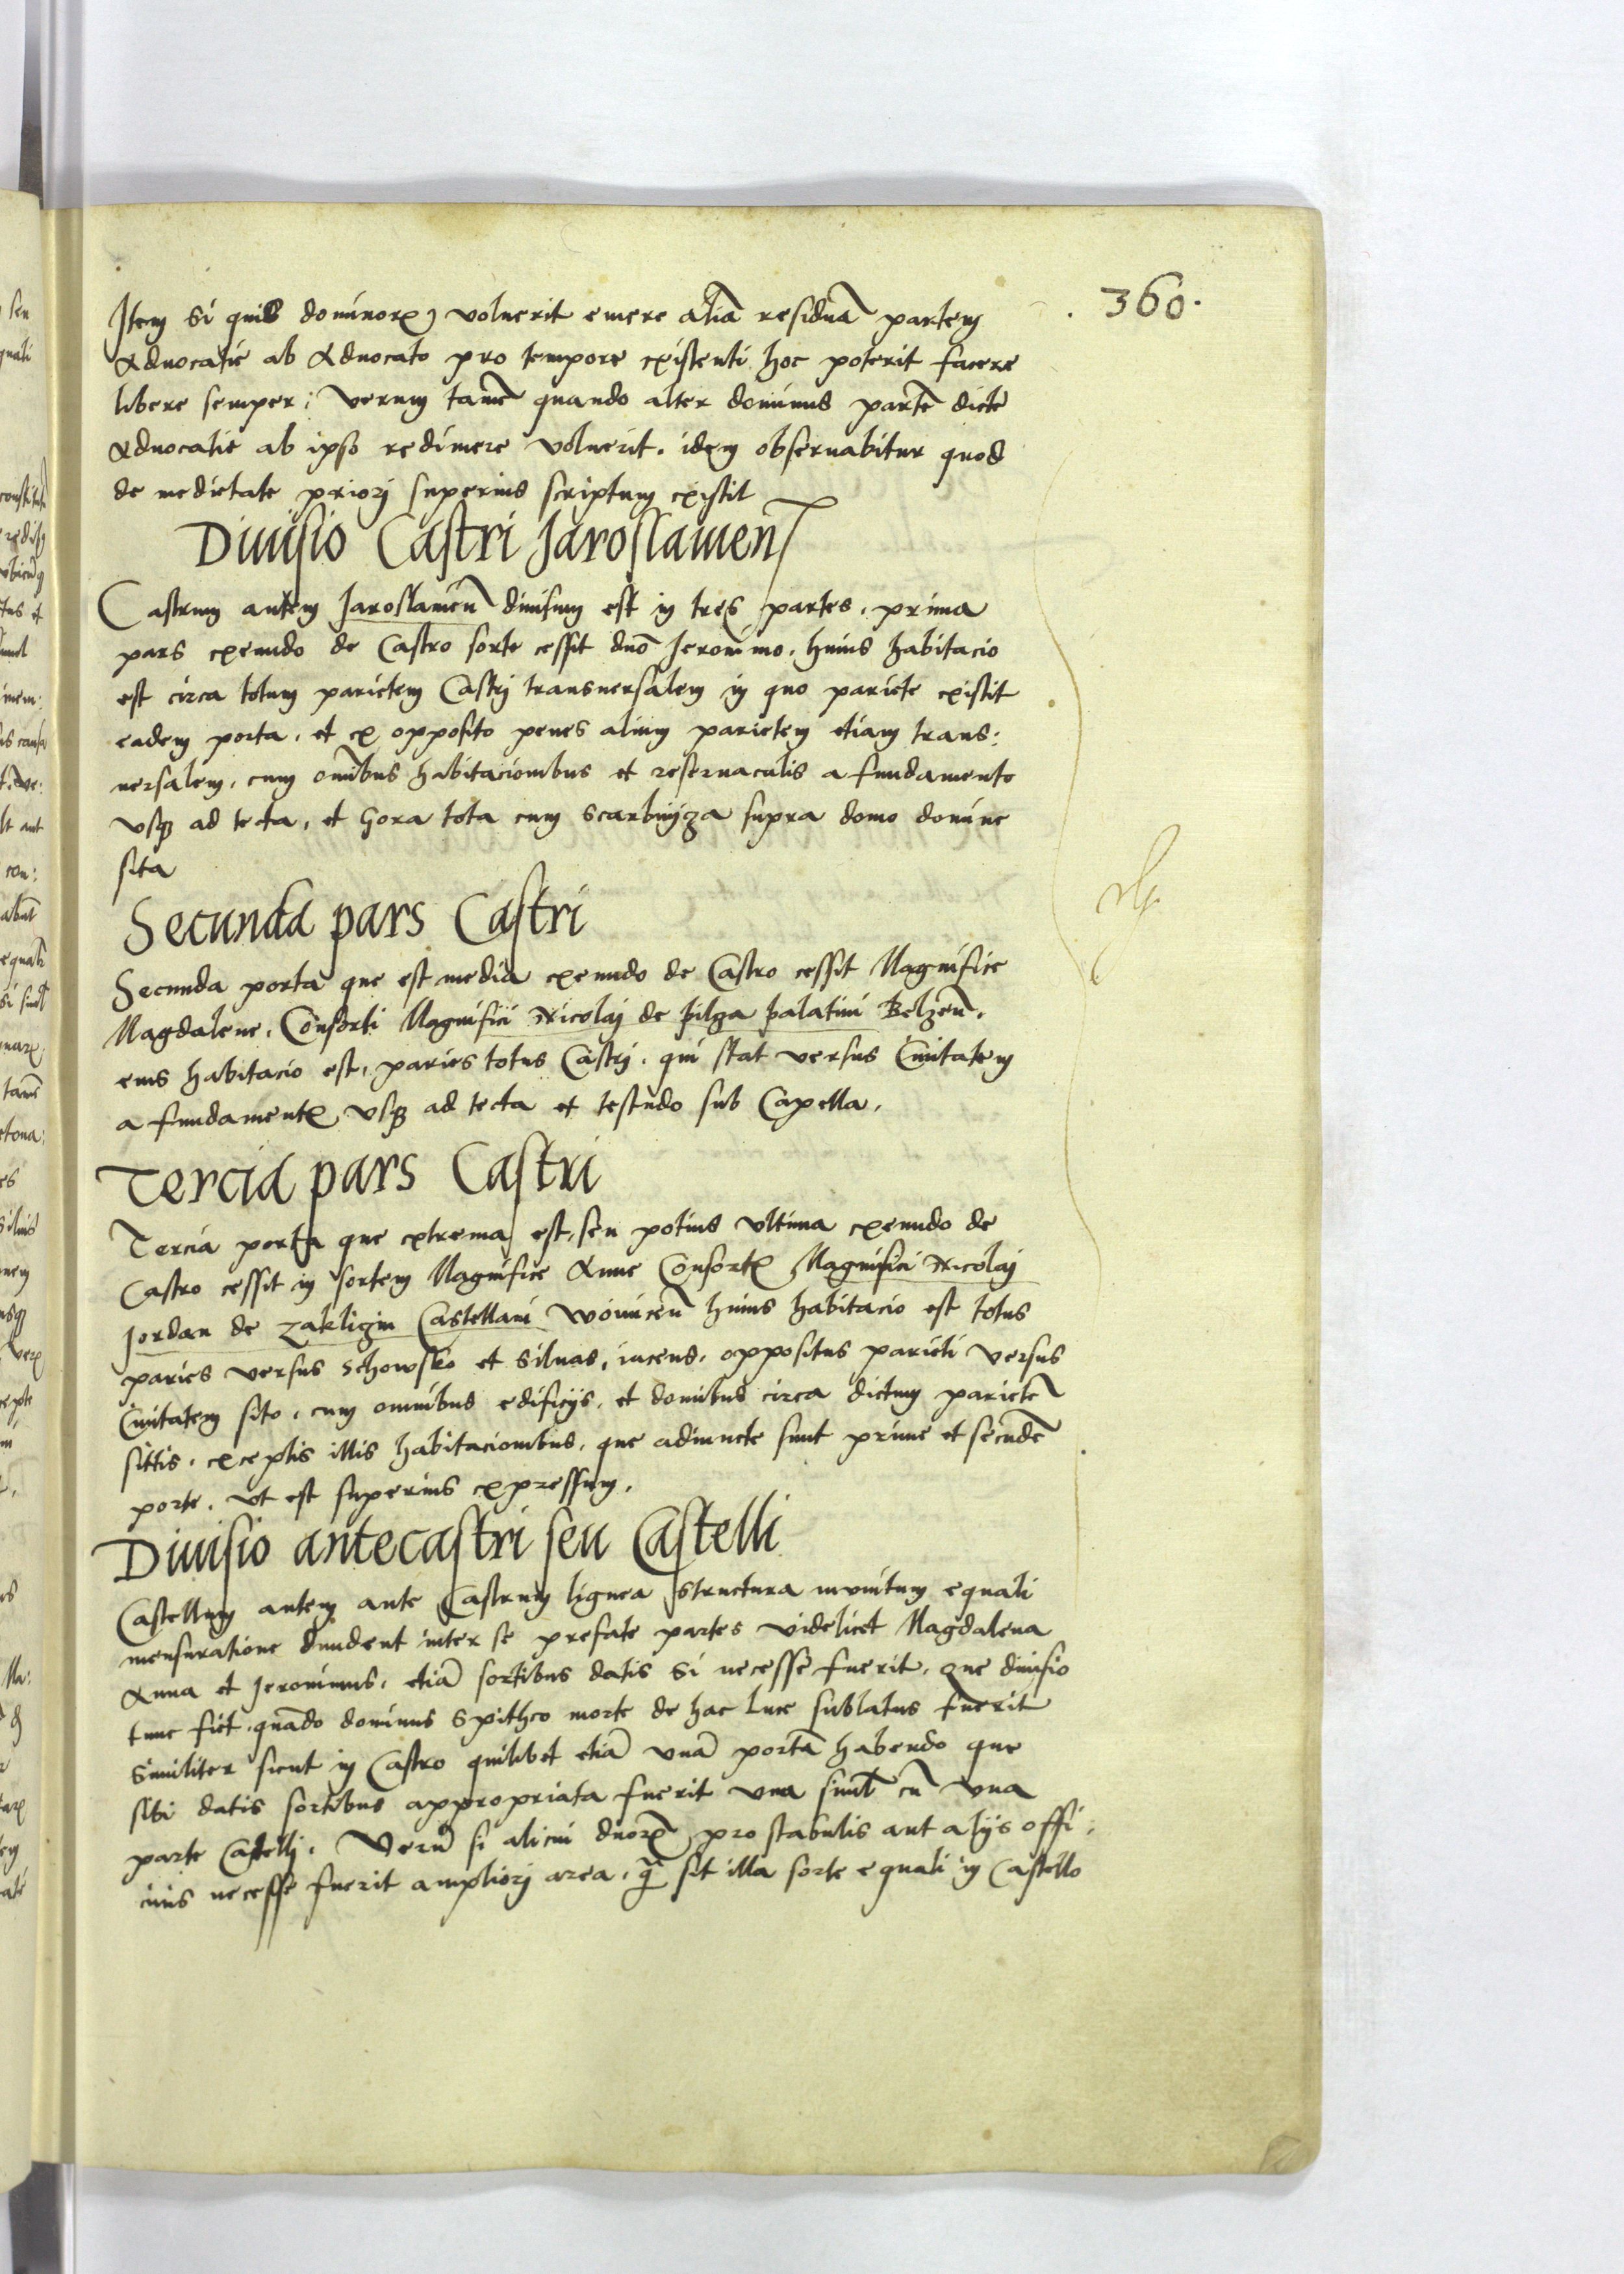 360.
Item si quis dominorꝝ voluerit emere aliā residuā partem
Aduocatie ab Aduocato pro tempore existenti hoc poterit facere
libere semper: verum tamē quando alter dominus partē dicte
Aduocatie ab ipso redimere voluerit. idem obseruabitur quod
de medietate priorj superius scriptum existit
Diuisio Castri Jaroslauień
Castrum autem Jaroslauień diuisum est in tres partes. prima
pars exeundo de Castro sorte cessit dnō Jeronimo. huius habitacio
est circa totum parietem Castrj transuersalem in quo pariete existit
eadem porta. et ex opposito penes alium parietem etiam trans:
uersalem. cum omībus habitacionibus et reseruaculis a fundamento
vsqꝫ ad tecta. et Gora tota cum scarbnyza supra domo domine
sita
Secunda pars Castri
Secunda porta que est media exeundo de Castro cessit Magnifice
Magdalene. Consorti Magnifici Nicolaj de pilza palatini Belzeń.
eius habitacio est. paries totus Castrj. qui stat versus Ciuitatem
a fundamentꝭ vsqꝫ ad tecta et testudo sub Capella.
Tercia pars Castri
Tercia porta que extrema est, seu potius vltima exeundo de
Castro cessit in sortem Magnifice Anne Consortꝭ Magnifici Nicolaj
Jordan de Zakligin Castellani Woiniceń huius habitacio est totus
paries versus Schowsko et Siluas, iacens. oppositus parieti versus
Ciuitatem sito. cum omnibus edificijs. et domibus circa dictum parietē
sittis. exceptis illis habitacionibus. que adiuncte sunt prime et secundē
porte. vt est superius expressum.
Diuisio antecastri seu Castelli
Castellum autem ante Castrum lignea structura munitum equali
mensuratione diuident inter se prefate partes videlicet Magdalena
Anna et Jeronimus. etiā sortibus datis si necesse fuerit. que diuisio
tunc fiet. quādo dominus Spithco morte de hac luce sublatus fuerit
Similiter sicut in Castro quilibet etiā vnā portā habendo que
sibi datis sortibus appropriata fuerit vna simul cū vna
parte Castellj. Verū si alicui dnorꝝ pro stabulis aut alijs offi:
cinis necesse fuerit ampliorj area. qᷓ sit illa sorte equali in Castello